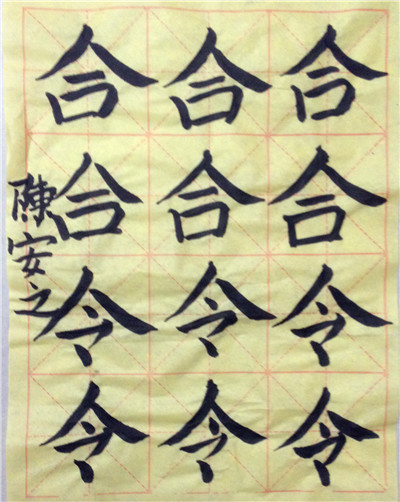 合合合
合合合
令令令
令令令
陳安之